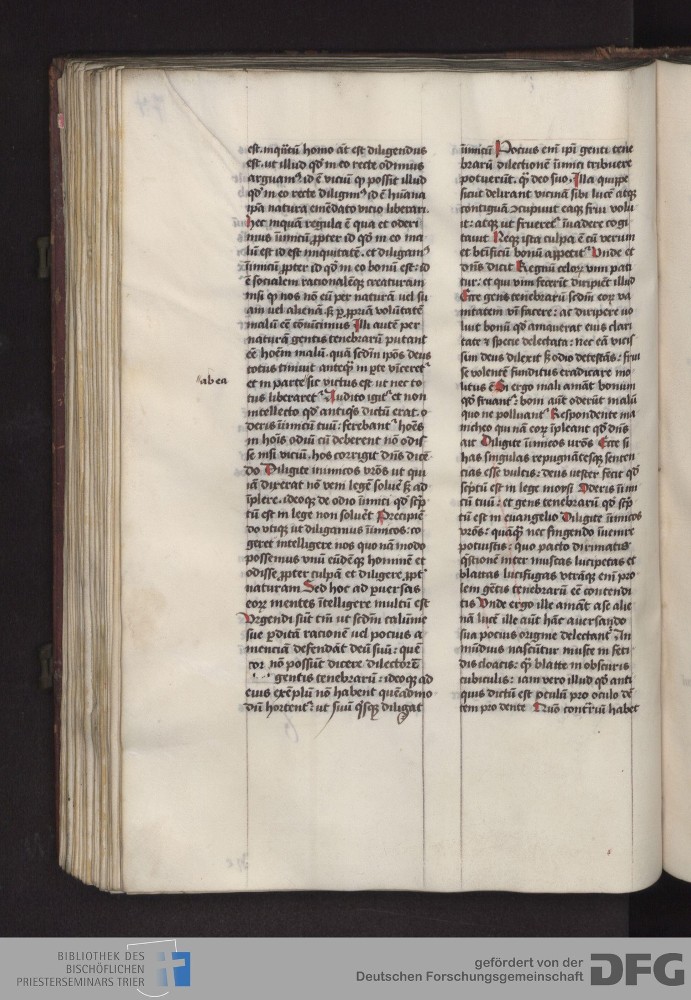 est. inqͣtū homo aūt est diligendus
est. ut illud qd̄ in eo recte odimus
arguamꝰ id ē viciū qͦ possit illud
qd̄ in eo recte diligimꝰ id ē hūana
ip̄a natura emēdato vicio liberari.
Hec inquā regula ē qua et oderi
mus inimicū ꝓpter id qd̄ in eo ma
lū est id est iniquitatē. et diligamꝰ
inimicū ꝓpter id qd̄ in eo bonū est: id
ē socialem racionalēqꝫ creaturam
nisi qͦ nos nō eū per naturā uel su
am uel alienā sꝫ ꝓpriā volūtatē
malū eē cōuīcimus Illi autē per
naturā gentis tenebrarū putant
eē hoīem malū. quā scdm̄ ip̄os deus
totus timuit anteqͣ in ꝑte vīceret᷑
et in parte sic victus est ut nec to
ab ea
tus liberaret᷑ Audito igit᷑ et non
intellecto qd̄ antiqͥs dictū erat. o
deris inimicū tuū: ferebant᷑ hoīes
in hoīs odiū cū deberent nō odis
se nisi viciū. hos corrigit dn̄s dicē
do Diligite inimicos vr̄os ut qui
iā dixerat nō veni legē soluē sꝫ ad
īplere. ideoqꝫ de odio inimici qd̄ scͥp
tū est in lege non soluēt Precipiē
do utiqꝫ ut diligamus inimicos: co
geret intelligere nos quo nā modo
possemus unū eūdēqꝫ hominē et
odisse ꝓpter culpā et diligere ꝓpt᷑
naturam Sed hoc ad ꝑuersas
eorꝫ mentes ītelligere multū est
Vrgendi sūt tn̄ ut scdm̄ calūnie
sue ꝑditā racionē uel pocius a
menciā defendāt deū suū: quē
nō possūt dicere dilectorē
gentis tenebrarū: ideoqꝫ ad
eius exēplū nō habent quēadmo
dū hortent᷑: ut suū qͥsqꝫ diligat
inimicū Pocius em̄ ip̄i genti tene
brarū dilectionē inimici tribuere
potuerūt. qͣ deo suo. Illa quippe
sicut delirant vicinā sibi lucē atqꝫ
contiguā ꝯcupiuit eaqꝫ frui volu
it: atqꝫ ut frueret᷑ inuadere cogi
tauit Neqꝫ ista culpa ē cū verum
et beīficū bonū appetit᷑ Unde et
dn̄s dicit Regnū celorꝫ vim pati
tur: et qui vim fecerīt diripiēt illud
Ecce gens tenebrarū scdm̄ eorꝫ va
nitatem vī facere: ac diripere uo
luit bonū qd̄ amauerat eius clari
tate ⁊ specie delectata: nec eā vicis
sim deus dilexit sꝫ odio detestās: frui
se volentē funditus eradicare mo
litus ē Si ergo mali amāt bonum
qd̄ fruant᷑: boni aūt oderūt malū
quo ne polluant᷑ Respondente ma
nicheo qui nā eorꝫ īpleant qd̄ dn̄s
ait Diligite inimicos vr̄os Ecce si
has singulas repugnātesqꝫ senten
cias esse vultis: deus uester fecit qd̄
scͥptū est in lege moysi Oderis inimi
cū tuū: et gens tenebrarū qd̄ scͥp
tū est in euangelio Diligite inimicos
vr̄os: quāqͣ nec fingendo inuenire
potuistis: quo pacto dirimatis
qͣstionē inter muscas lucipetas et
blattas lucifugas vtrāqꝫ em̄ pro
lem gētis tenebrarū eē contendi
tis Unde ergo ille amāt a se alie
nā lucē ille aūt hāc auersando
sua pocius origine delectant᷑ An
mūdius nascūtur musce in feti
dis cloacis: qͣ blatte in obscuris
cubiculis: iam vero illud qd̄ anti
quis dictū est oculū pro oculo dē
tem pro dente Quō contrͣriū habet
BIBLIOTHEK DES
BISCHÖFLICHEN
PRIESTERSEMINARS TRIER
gefördert von der
Deutschen Forschungsgemeinschaft
DFG